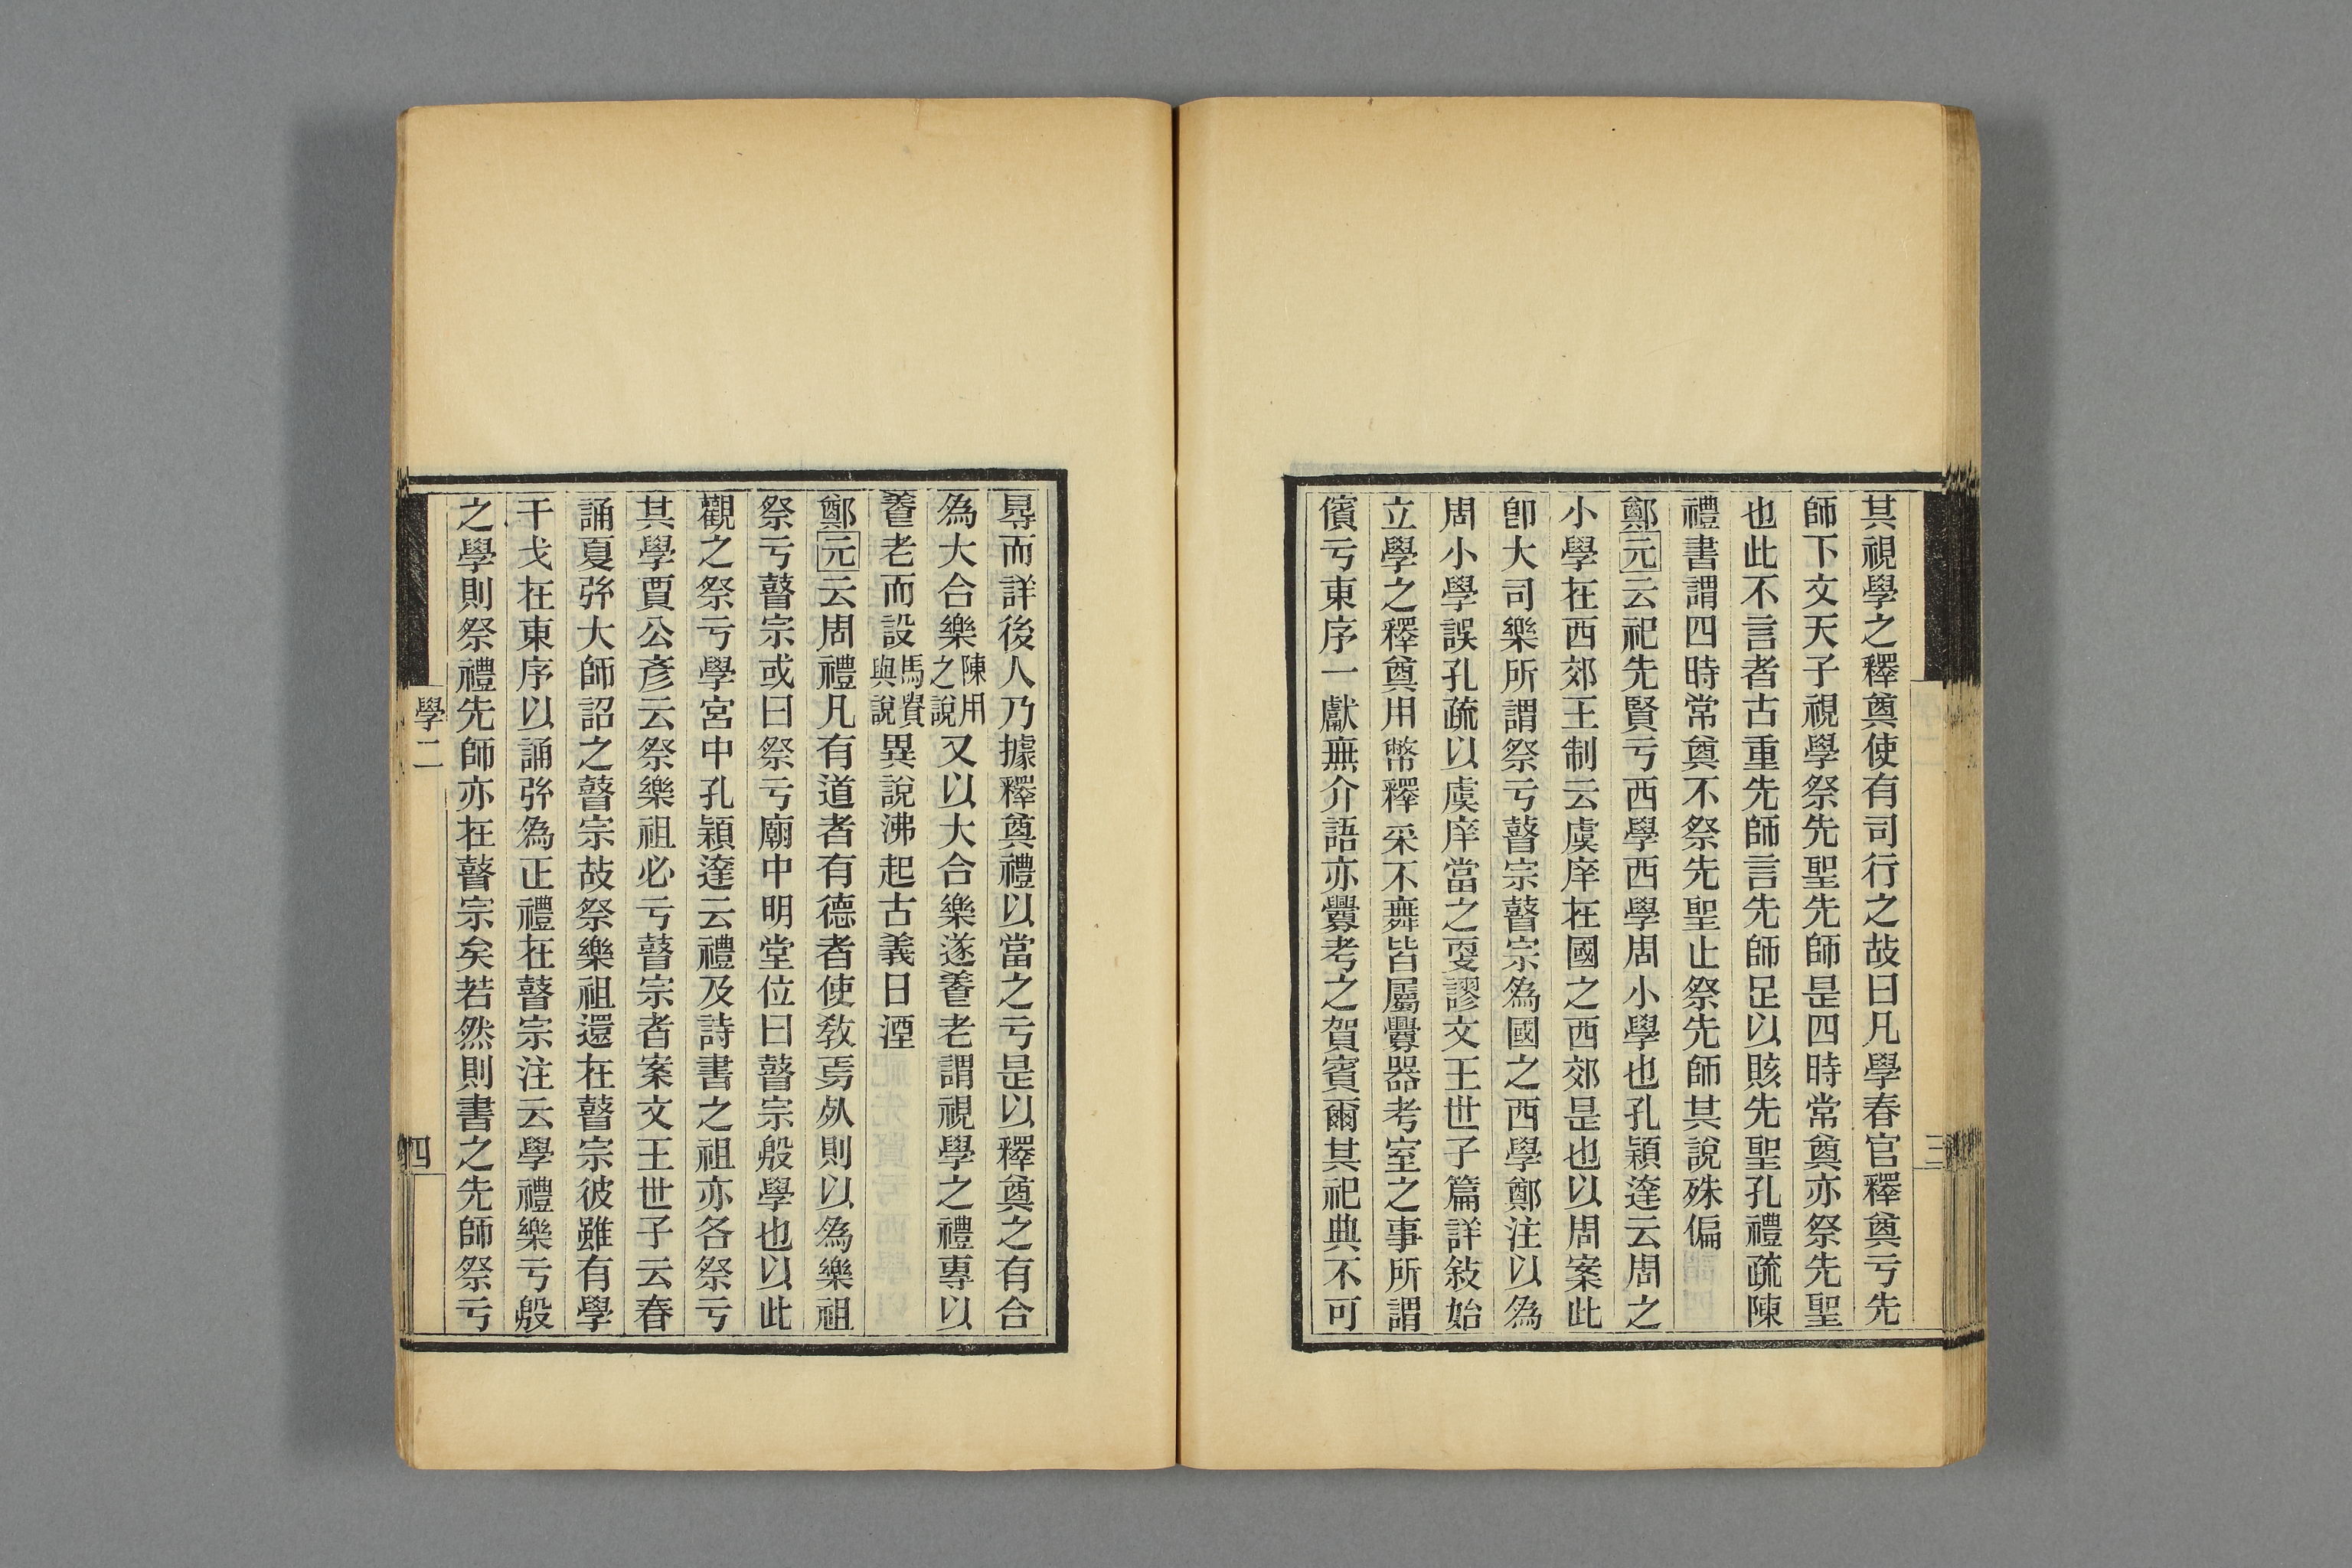 其視學之釋奠使有司行之故曰凡學春官釋奠亏先
師下文天子視學祭先聖先師是四時常奠亦祭先聖
也此不言者古重先師言先師足以賅先聖孔禮疏陳
禮書謂四時常奠不祭先聖止祭先師其說殊偏
鄭元云祀先賢亏西學西學周小學也孔穎達云周之
小學在西郊王制云虞庠在國之西郊是也以周案此
卽大司樂所謂祭亏瞽宗瞽宗為國之西學鄭注以為
周小學誤孔疏以虞庠當之更謬文王世子篇詳敍始
立學之釋奠用幣釋采不舞皆屬釁器考室之事所謂
儐亏東序一獻無介語亦釁考之賀賓爾其祀典不可
尋而詳後人乃據釋奠禮以當之亏是以釋奠之有合
為大合樂陳用之說又以大合樂遂養老謂視學之禮專以
養老而設馬貴與說異說沸起古義日湮
鄭元云周禮凡有道者有德者使敎焉𣦸則以為樂祖
祭亏瞽宗或曰祭亏廟中明堂位曰瞽宗殷學也以此
觀之祭亏學宮中孔穎達云禮及詩書之祖亦各祭亏
其學賈公彥云祭樂祖必亏瞽宗者案文王世子云春
誦夏弦大師詔之瞽宗故祭樂祖還在瞽宗彼雖有學
干戈在東序以誦弦為正禮在瞽宗注云學禮樂亏殷
之學則祭禮先師亦在瞽宗矣若然則書之先師祭亏
學二
四
三